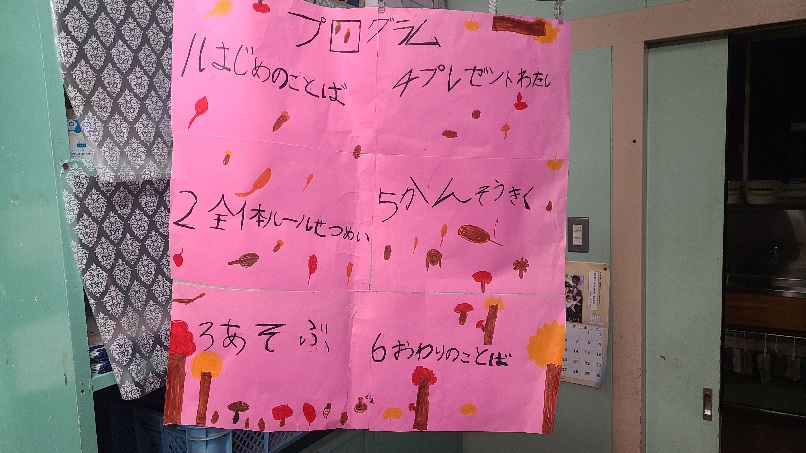 プログラム
1 はじめのことば
2 全体ルールせつめい
3 あそぶ
4 プレゼントわたし
5 かんそうきく
6 おわりのことば